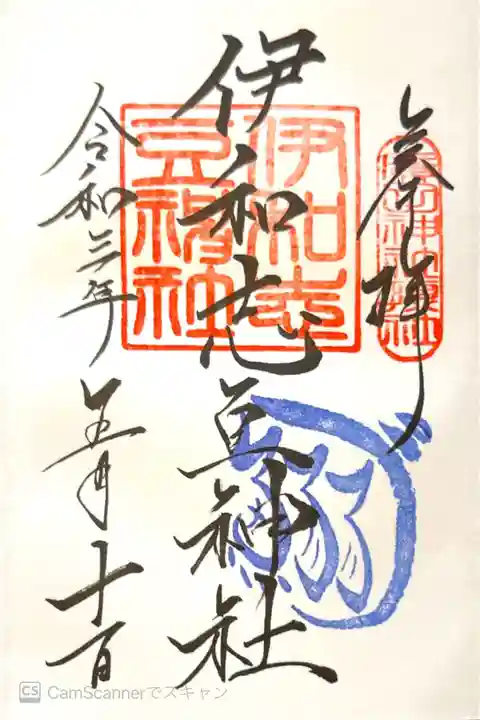 奉拝
伊和志豆神社
伊和志
豆神社
令和三年五月十一日
CS CamScannerでスキャン